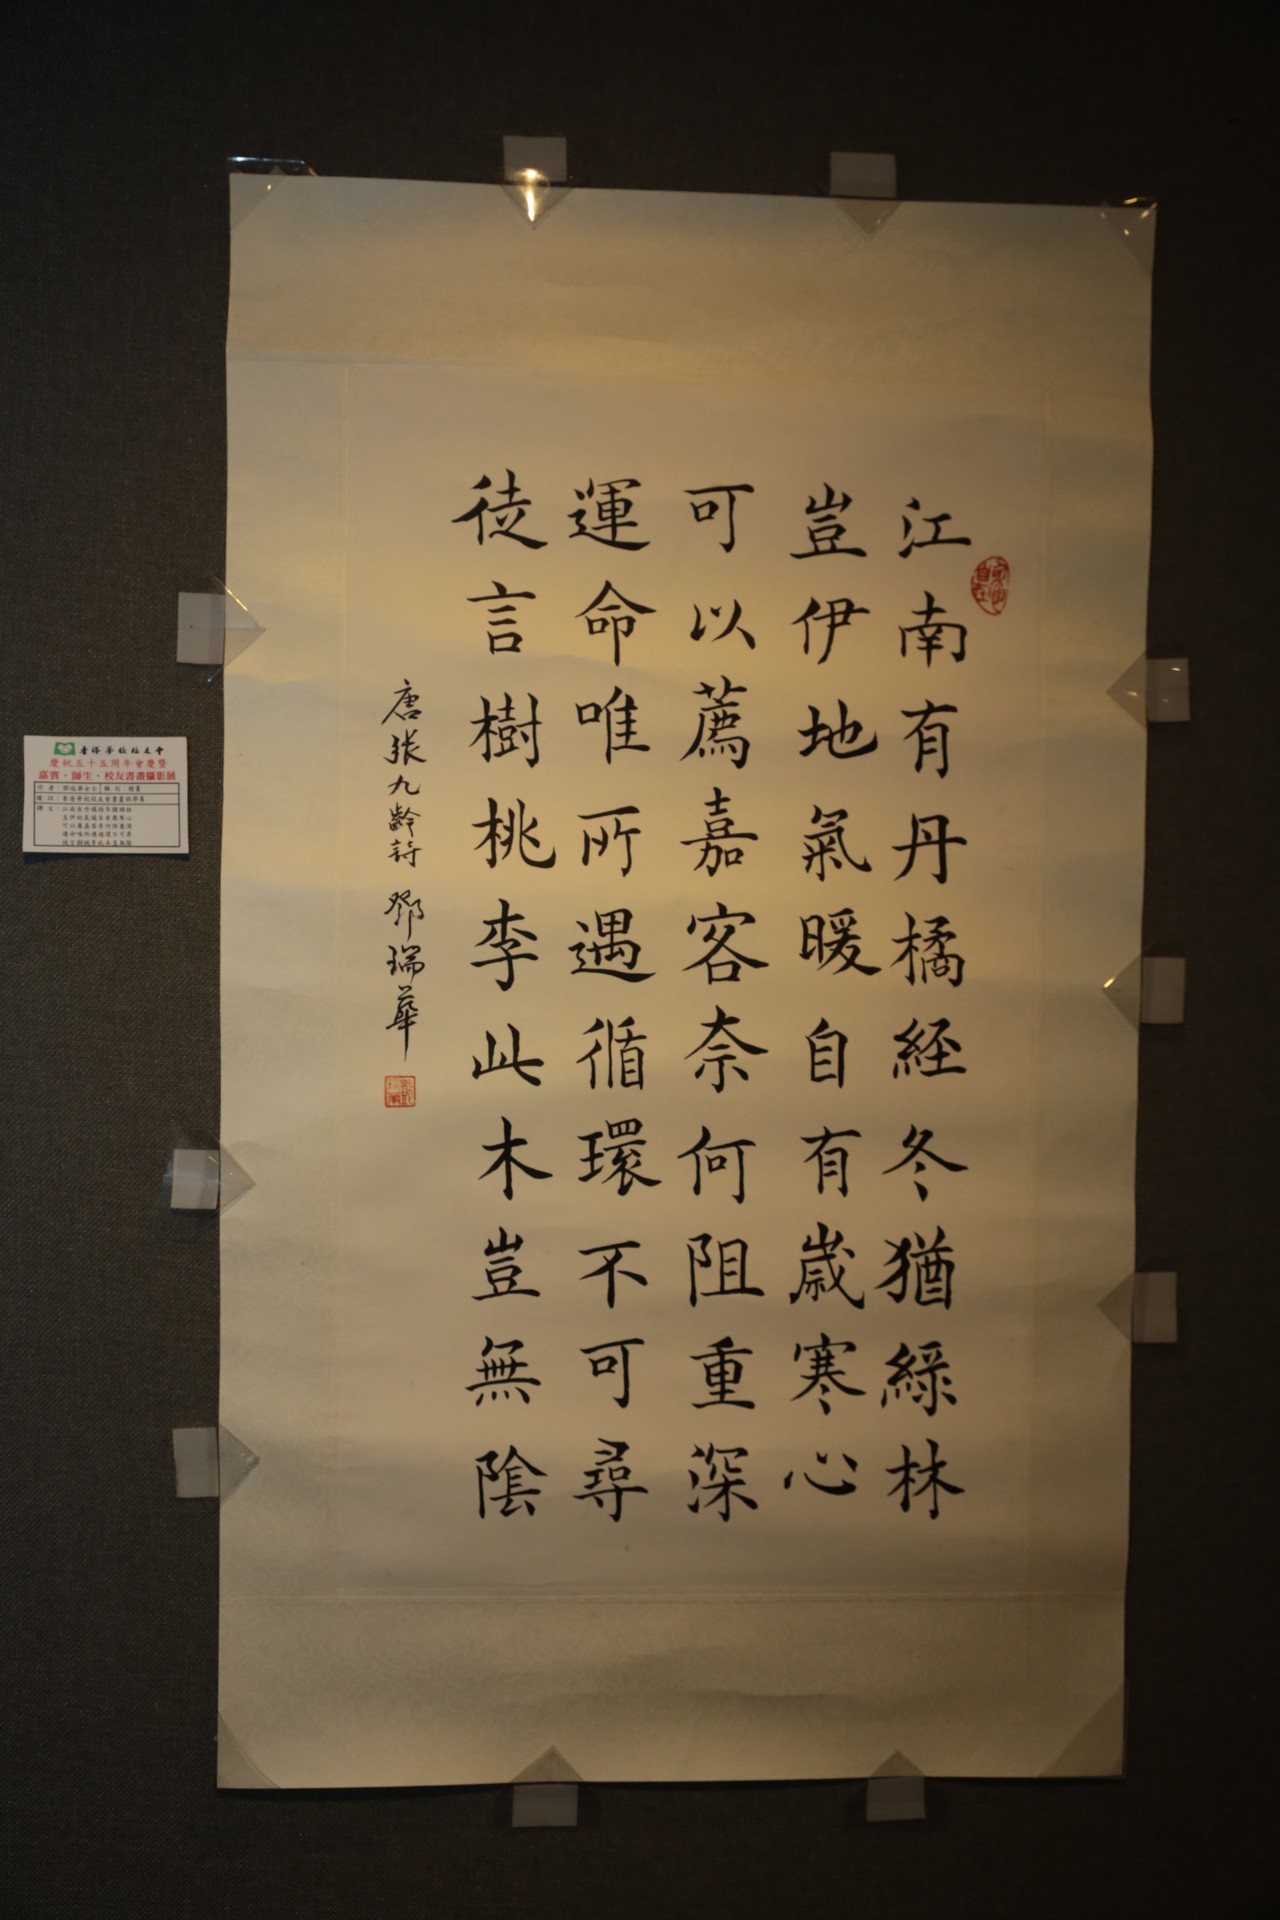 江南有丹橘経冬猶綠林
豈伊地氣暖自有歲寒心
可以薦嘉客奈何阻重深
運命唯所遇循環不可尋
徒言樹桃李此木豈無陰
唐張九齡詩 鄧瑞華
慶祝五十五周年會慶暨
嘉賓・師生・校友書畫攝影展